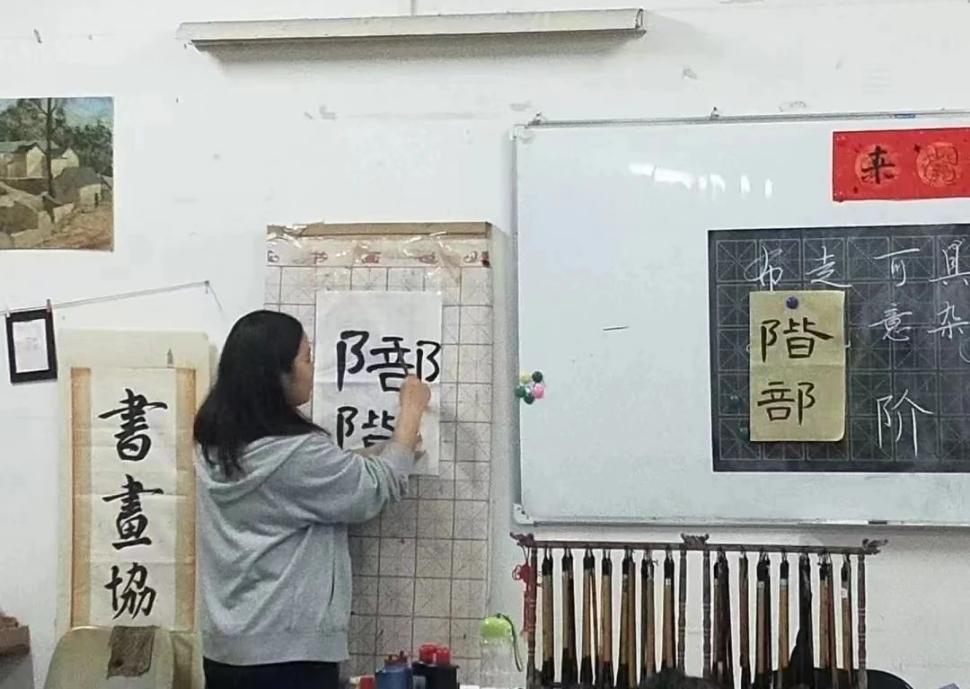 書畫協
书画
阝部
階
来
走可具
意杂
阶
階
部